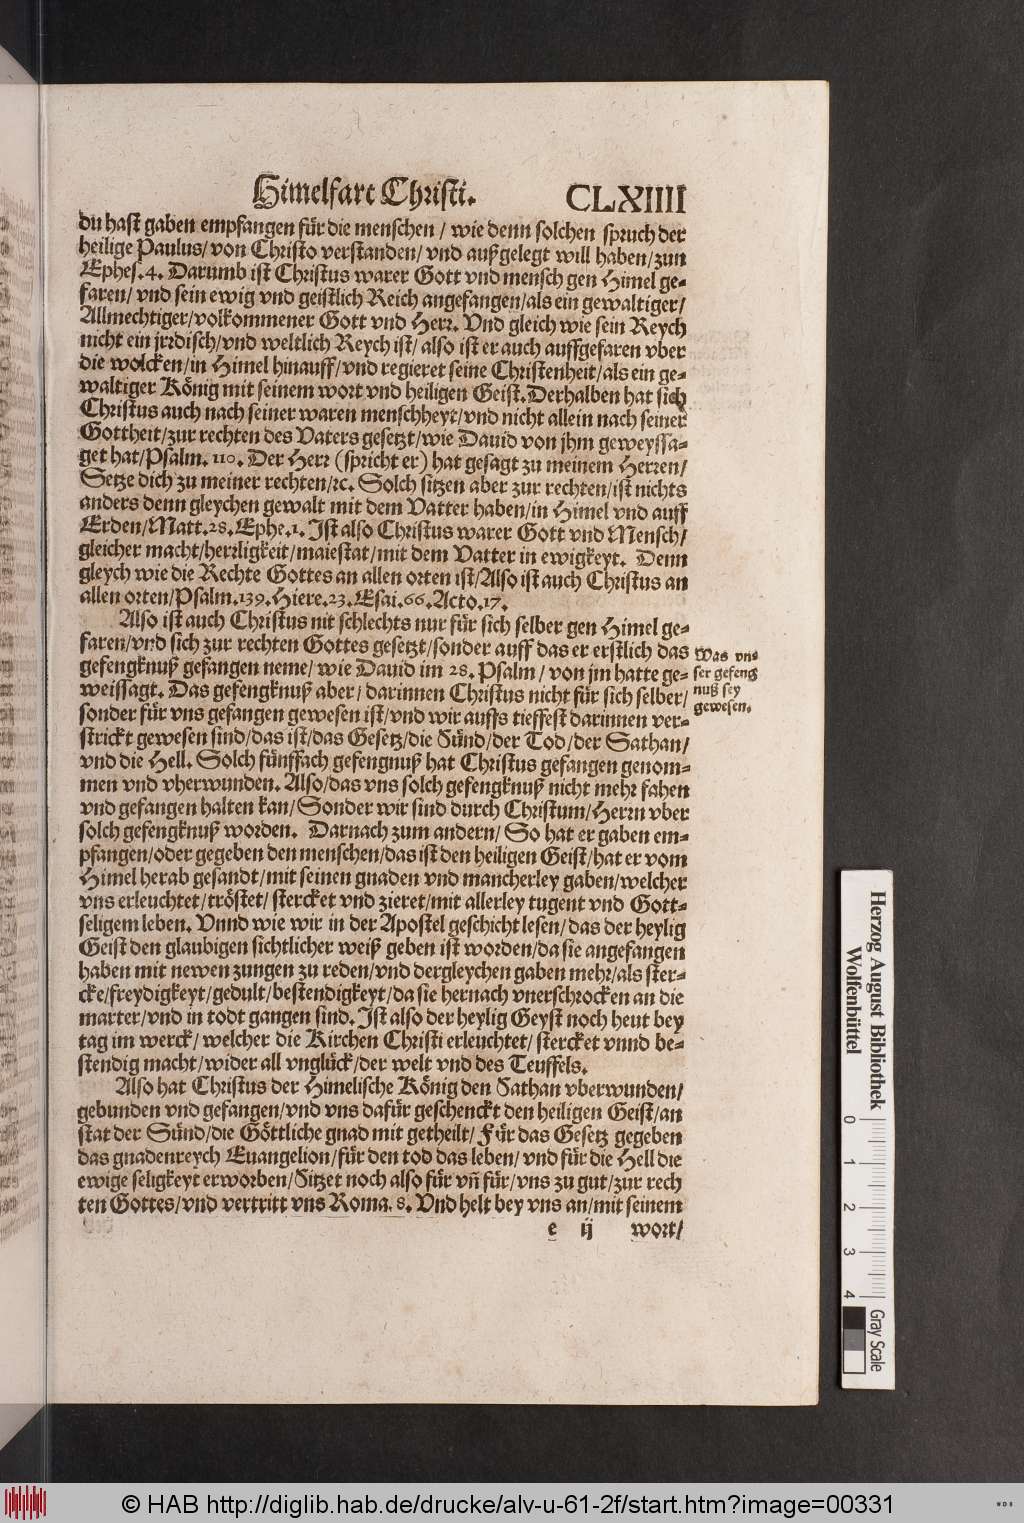 Himelfart Christi. CLXIIII
du hast gaben empfangen für die menschen / wie denn solchen spruch der
heilige Paulus/ von Christo verstanden/ vnd außgelegt will haben/ zun
Ephes.4. Darumb ist Christus warer Gott vnd mensch gen Himel ge-
faren/ vnd sein ewig vnd geistlich Reich angefangen/als ein gewaltiger/
Allmechtiger/volkommener Gott vnd Herr. Vnd gleich wie sein Reych
nicht ein jrrdisch/vnd weltlich Reych ist/ also ist er auch auffgefaren vber
die wolcken/in Himel hinauff/vnd regieret seine Christenheit/als ein ge-
waltiger König mit seinem wort vnd heiligen Geist. Derhalben hat sich
Christus auch nach seiner waren menschheyt/vnd nicht allein nach seiner
Gottheit/zur rechten des Vaters gesetzt/wie Dauid von jhm geweyssa-
get hat/Psalm. 110. Der Herr (spricht er) hat gesagt zu meinem Herren/
Setze dich zu meiner rechten/ꝛc. Solch sitzen aber zur rechten/ist nichts
anders denn gleychen gewalt mit dem Vatter haben/in Himel vnd auff
Erden/Matt.28. Ephe.1. Jst also Christus warer Gott vnd Mensch/
gleicher macht/herrligkeit/maiestat/mit dem Vatter in ewigkeyt. Denn
gleych wie die Rechte Gottes an allen orten ist/Also ist auch Christus an
allen orten/Psalm.139. Hiere.23. Esai.66. Acto.17.
Also ist auch Christus nit schlechts nur für sich selber gen Himel ge-
faren/vnd sich zur rechten Gottes gesetzt/sonder auff das er erstlich das
gefengknuß gefangen neme/ wie Dauid im 28. Psalm/ von jm hatte ge-
weissagt. Das gefengknuß aber/ darinnen Christus nicht für sich selber/
sonder für vns gefangen gewesen ist/vnd wir auffs tieffest darinnen ver-
strickt gewesen sind/das ist/das Gesetz/die Sünd/der Tod/der Sathan/
vnd die Hell. Solch fünffach gefengnuß hat Christus gefangen genom-
men vnd vberwunden. Also/das vns solch gefengknuß nicht mehr fahen
vnd gefangen halten kan/ Sonder wir sind durch Christum/Herrn vber
solch gefengknuß worden. Darnach zum andern/ So hat er gaben em-
pfangen/oder gegeben den menschen/das ist den heiligen Geist/hat er vom
Himel herab gesandt/mit seinen gnaden vnd mancherley gaben/welcher
vns erleuchtet/tröstet/ stercket vnd zieret/mit allerley tugent vnd Gott-
seligem leben. Vnnd wie wir in der Apostel geschicht lesen/das der heylig
Geist den glaubigen sichtlicher weiß geben ist worden/da sie angefangen
haben mit newen zungen zu reden/vnd dergleychen gaben mehr/als ster-
cke/freydigkeyt/gedult/bestendigkeyt/da sie hernach vnerschrocken an die
marter/vnd in todt gangen sind. Jst also der heylig Geyst noch heut bey
tag im werck/ welcher die Kirchen Christi erleuchtet/ stercket vnnd be-
stendig macht/wider all vnglück/der welt vnd des Teuffels.
Also hat Christus der Himelische König den Sathan vberwunden/
gebunden vnd gefangen/vnd vns dafür geschenckt den heiligen Geist/an
stat der Sünd/die Göttliche gnad mit getheilt/ Für das Gesetz gegeben
das gnadenreych Euangelion/für den tod das leben/ vnd für die Hell die
ewige seligkeyt erworben/ Sitzet noch also für vñ für/vns zu gut/zur rech
ten Gottes/vnd vertritt vns Roma. 8. Vnd helt bey vns an/mit seinem
e ij wort/
Was vn-
ser gefeng
nuß sey
gewesen.
Herzog August Bibliothek
Wolfenbüttel
0 1 2 3 4
Gray Scale
© HAB http://diglib.hab.de/drucke/alv-u-61-2f/start.htm?image=00331
WDB